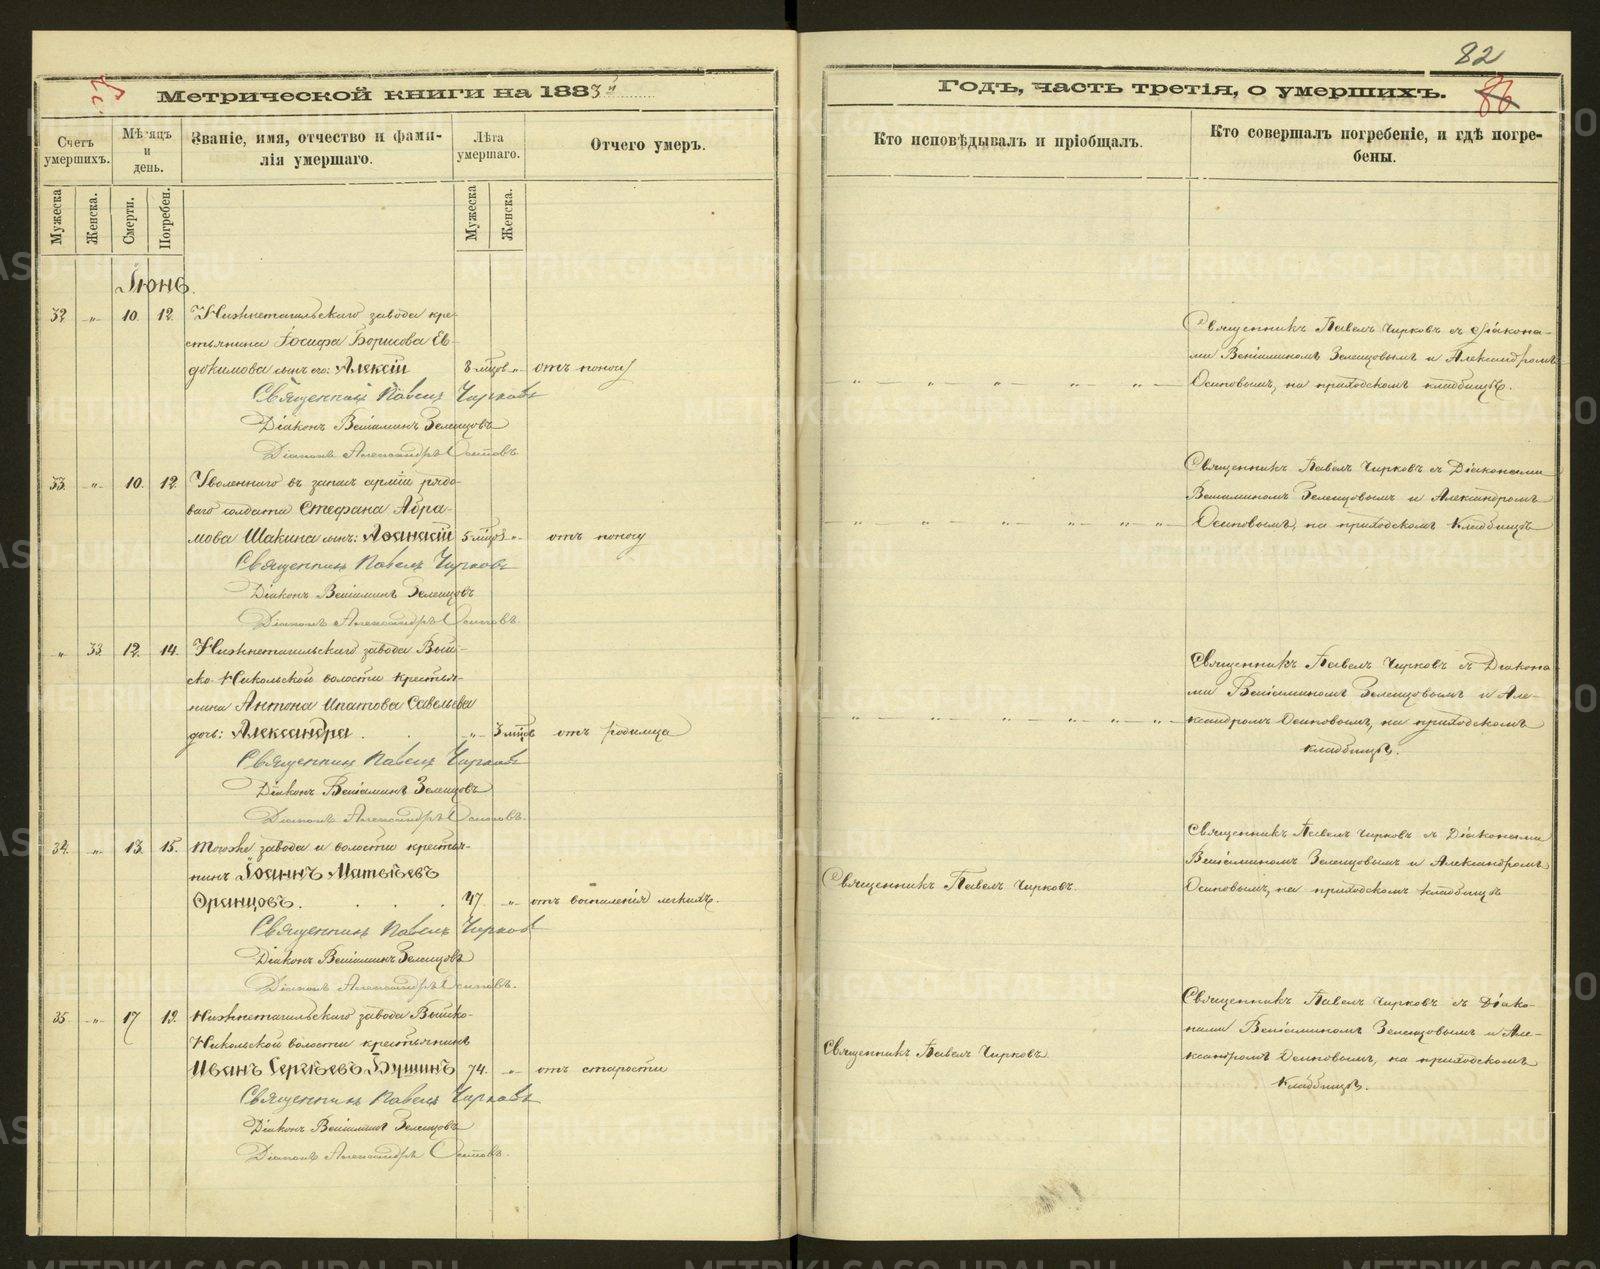 82
86
Метрической книги на 1883й
Годъ, часть третія, о умершихъ.
Счетъ умершихъ.
Мѣсяцъ и день.
Званіе, имя, отчество и фами-
лія умершаго.
Лѣта умершаго.
Отчего умеръ.
Кто исповѣдывалъ и пріобщалъ.
Кто совершалъ погребеніе, и гдѣ погре-
бены.
Мужеска
Женска.
Смерти.
Погребен.
Мужеска
Женска.
Іюнь.
32. „ 10. 12. Нижнетагильскаго завода кре-
стьянина Іосифа Борисова Ев-
докимова сынъ его: Алексій 8 мцовъ „ отъ поносу
Священникъ Павелъ Чирковъ
Діаконъ Веніаминъ Зеленцовъ
Діаконъ Александръ Осиповъ
Священникъ Павелъ Чирковъ съ Діакона-
ми Веніаминомъ Зеленцовымъ и Александромъ
Осиповымъ, на приходскомъ кладбищѣ.
33. „ 10. 12. Уволеннаго въ запасъ арміи рядо-
ваго солдата Стефана Абра-
мова Шакина сынъ: Аѳанасій 5 мцовъ „ отъ поносу
Священникъ Павелъ Чирковъ
Діаконъ Веніаминъ Зеленцовъ
Діаконъ Александръ Осиповъ.
Священникъ Павелъ Чирковъ съ Діаконами
Веніаминомъ Зеленцовымъ и Александромъ
Осиповымъ, на приходскомъ кладбищѣ
„ 33. 12. 14. Нижнетагильскаго завода Вый-
ско-Никольской волости крестья-
нина Антона Ипатова Савельева
дочь: Александра „ 3 мцовъ отъ родимца
Священникъ Павелъ Чирковъ
Діаконъ Веніаминъ Зеленцовъ
Діаконъ Александръ Осиповъ.
Священникъ Павелъ Чирковъ съ Діакона-
ми Веніаминомъ Зеленцовымъ и Але-
ксандромъ Осиповымъ, на приходскомъ
кладбищѣ.
34. „ 13. 15. Тогоже завода и волости крестья-
нинъ Іоаннъ Матвѣевъ
Оранцовъ. 47 „ отъ воспаленія легкихъ.
Священникъ Павелъ Чирковъ
Діаконъ Веніаминъ Зеленцовъ
Діаконъ Александръ Осиповъ.
Священникъ Павелъ Чирковъ.
Священникъ Павелъ Чирковъ съ Діаконами
Веніаминомъ Зеленцовымъ и Александромъ
Осиповымъ, на приходскомъ кладбищѣ
35. „ 17 19. Нижнетагильскаго завода Выйско-
Никольской волости крестьянинъ
Иванъ Сергѣевъ Бушинъ 74. „ отъ старости
Священникъ Павелъ Чирковъ
Діаконъ Веніаминъ Зеленцовъ
Діаконъ Александръ Осиповъ.
Священникъ Павелъ Чирковъ
Священникъ Павелъ Чирковъ съ Діако-
нами Веніаминомъ Зеленцовымъ и Але-
ксандромъ Осиповымъ, на приходскомъ
кладбищѣ.
METRIKI.GASO-URAL.RU